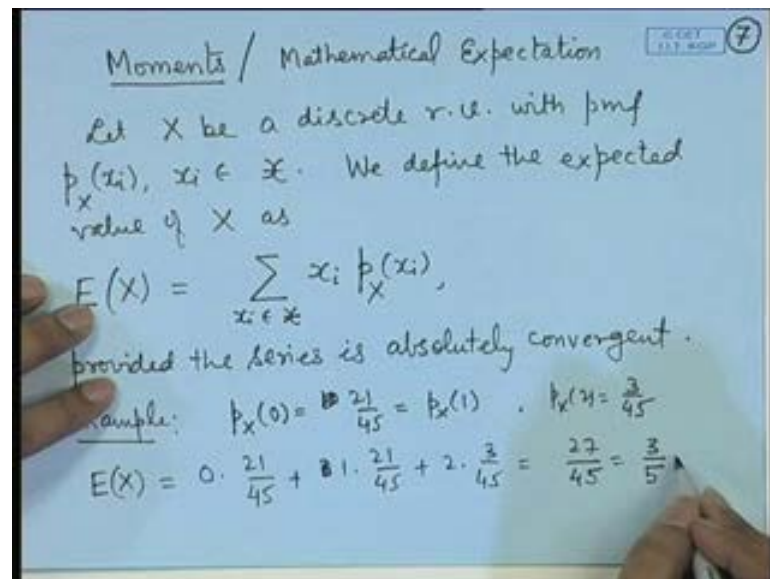 Moments / Mathematical Expectation
7
Let X be a discrete r.v. with pmf
p_X(x_i), x_i ∈ 𝒳. We define the expected
value of X as
E(X) = Σ_{x_i ∈ 𝒳} x_i p_X(x_i),
provided the series is absolutely convergent.
Example: p_X(0) = 21/45 = p_X(1), p_X(2) = 3/45
E(X) = 0. 21/45 + 1. 21/45 + 2. 3/45 = 27/45 = 3/5